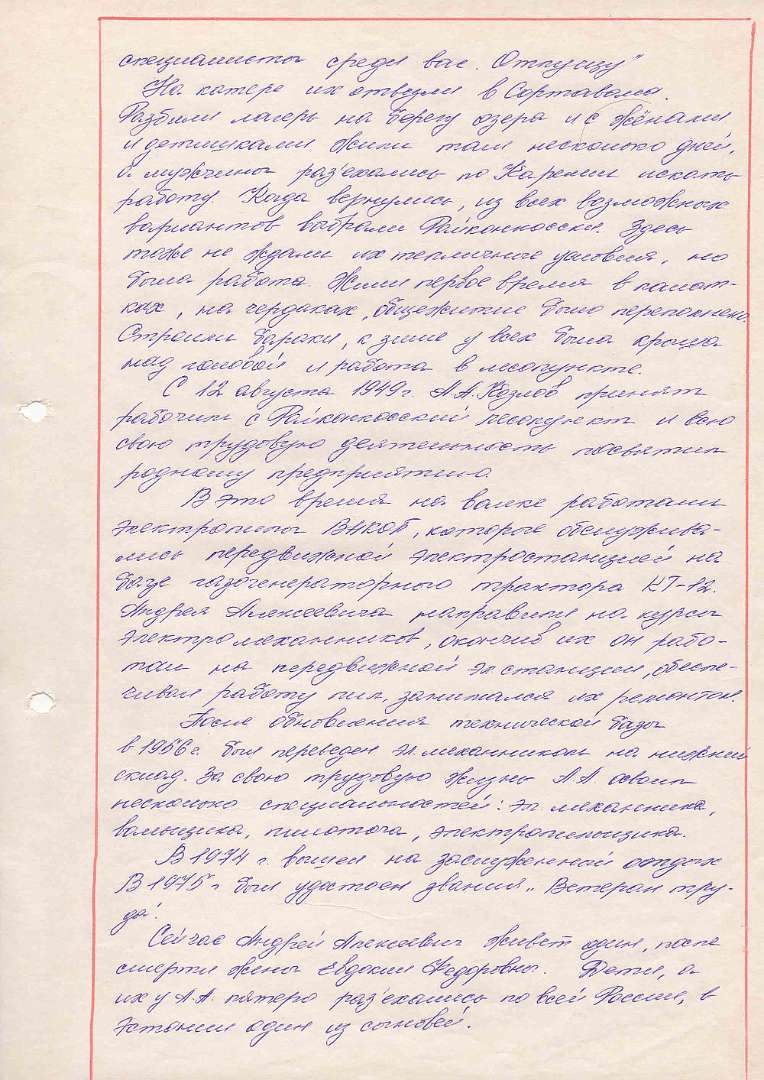 специалисты среди вас. Отпущу"
На катере их отвезли в Сортавала.
Разбили лагерь на берегу озера и с жёнами
и детишками жили там несколько дней,
а мужчины раз'ехались по Карелии искать
работу. Когда вернулись, из всех возможных
вариантов выбрали Райконкоски. Здесь
тоже не ждали их тепличные условия, но
была работа. Жили первое время в палат-
ках, на чердаках, общежитие было переполнено.
Строили бараки, к зиме у всех была крыша
над головой и работа в лесопункте.
С 12 августа 1949г А.А. Козлов принят
рабочим в Райконкоский лесопункт и всю
свою трудовую деятельность посвятил
родному предприятию.
В это время на валке работали
электропилы ВАКОП, которые обслужива-
лись передвижной электростанцией на
базе газогенераторного трактора КТ-12.
Андрея Алексеевича направили на курсы
электромеханников, окончив их он рабо-
тал на передвижной эл станции, обеспе-
чивал работу пил, занимался их ремонтом.
После обновления технической базы
в 1956г. был переведен эл механником на нижний
склад. За свою трудовую жизнь А А освоил
несколько специальностей: эл механника,
вальщика, пилоточа, электропильщика.
В 1974 г. вышел на заслуженный отдых
В 1975 г был удостоен звания „Ветеран тру-
да".
Сейчас Андрей Алексеевич живет один, после
смерти жены Евдокии Федоровны. Дети, а
их у А.А. пятеро раз'ехались по всей России, в
Эстонии один из сыновей.